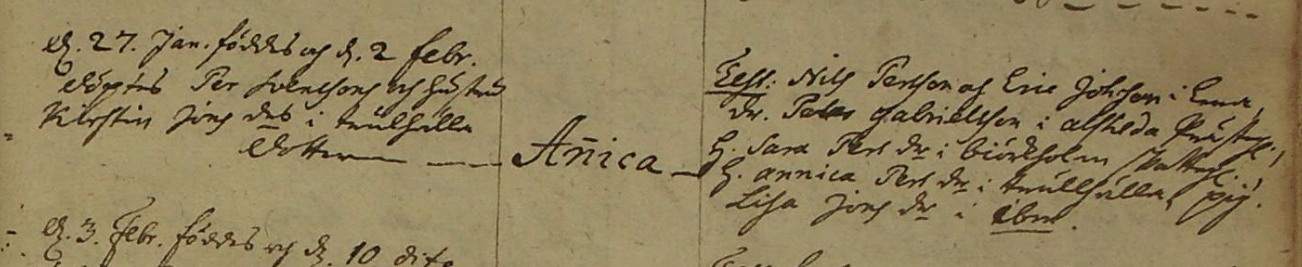 d. 27. Jan. föddes och d. 2 Febr.
döptes Per Svensons och hustru
Kirstin Jons drs i trulhälla
dotter
Añica
Test: Nils Person och Eric Johson i
dr. Peter Gabrielsson i alsheda
h. Sara Pers dr i biörkholm
h. annica Pers dr i trullhälla, pig.
Lisa Jons dr i ibm.
d. 3. Febr. föddes och d. 10 dito